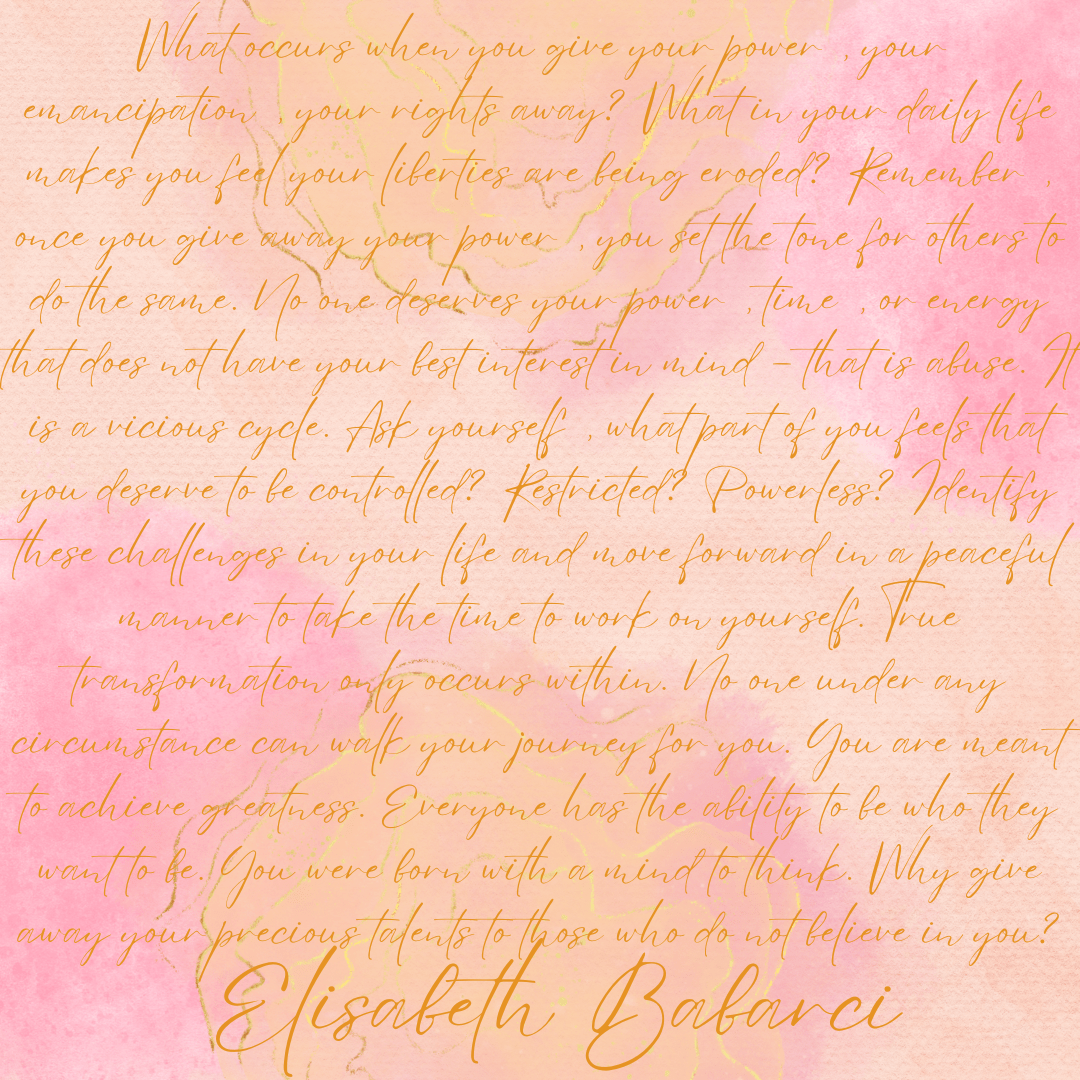 What occurs when you give your power , your
emancipation , your rights away? What in your daily life
makes you feel your liberties are being eroded? Remember ,
once you give away your power , you set the tone for others to
do the same. No one deserves your power , time , or energy
that does not have your best interest in mind - that is abuse. It
is a vicious cycle. Ask yourself , what part of you feels that
you deserve to be controlled? Restricted? Powerless? Identify
these challenges in your life and move forward in a peaceful
manner to take the time to work on yourself. True
transformation only occurs within. No one under any
circumstance can walk your journey for you. You are meant
to achieve greatness. Everyone has the ability to be who they
want to be. You were born with a mind to think. Why give
away your precious talents to those who do not believe in you?
Elisabeth Babarci